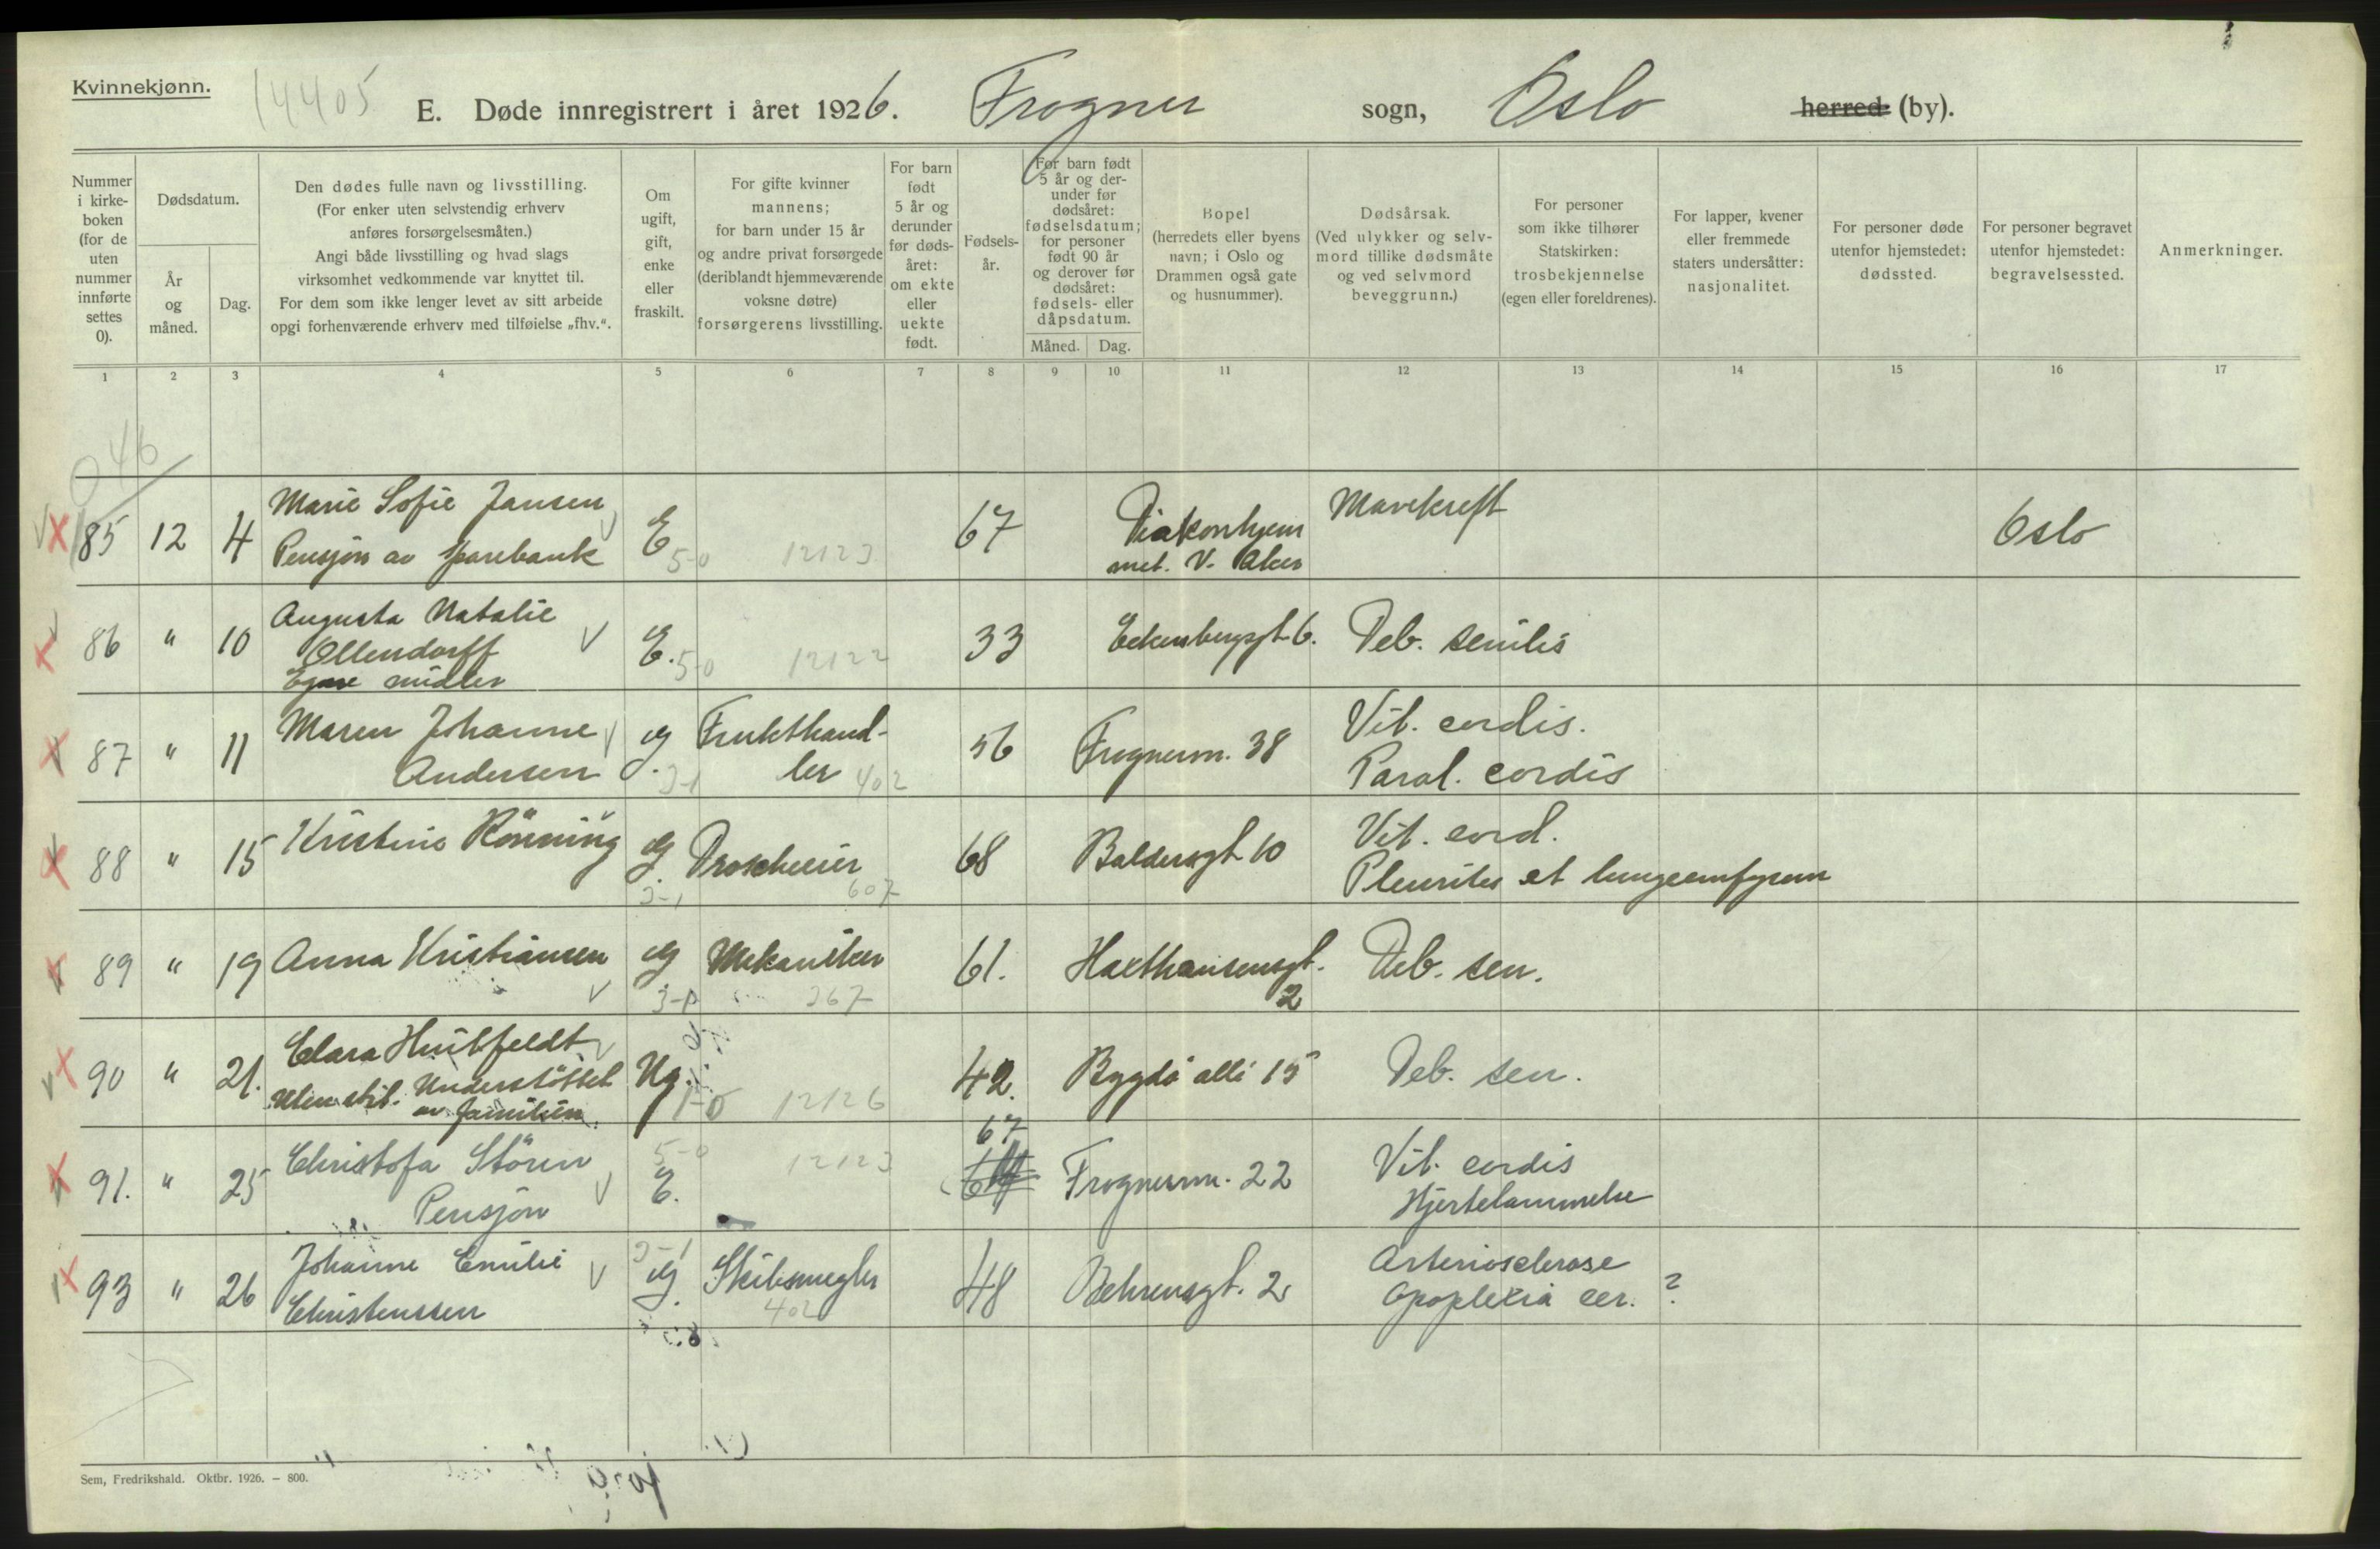 Kvinnekjønn.
14405
E. Døde innregistrert i året 1926. Frogner sogn, Oslo herred (by).
Nummer i kirkeboken (for de uten nummer innførte settes 0).
Dødsdatum.
År og måned.
Dag.
Den dødes fulle navn og livsstilling.
(For enker uten selvstendig erhverv
anføres forsørgelsesmåten.)
Angi både livsstilling og hvad slags
virksomhet vedkommende var knyttet til.
For dem som ikke lenger levet av sitt arbeide
opgi forhenværende erhverv med tilføielse „fhv.“.
Om ugift, gift, enke eller fraskilt.
For gifte kvinner
mannens;
for barn under 15 år
og andre privat forsørgede
(deriblandt hjemmeværende
voksne døtre)
forsørgerens livsstilling.
For barn født 5 år og derunder før dødsåret: om ekte eller uekte født.
Fødselsår.
For barn født
5 år og derunder før
dødsåret:
fødselsdatum;
for personer
født 90 år
og derover før
dødsåret:
fødsels- eller
dåpsdatum.
Måned. Dag.
Bopel
(herredets eller byens
navn; i Oslo og
Drammen også gate
og husnummer).
Dødsårsak.
(Ved ulykker og selvmord tillike dødsmåte
og ved selvmord
beveggrunn.)
For personer
som ikke tilhører
Statskirken:
trosbekjennelse
(egen eller foreldrenes).
For lapper, kvener
eller fremmede
staters undersåtter:
nasjonalitet.
For personer døde
utenfor hjemstedet:
dødssted.
For personer begravet
utenfor hjemstedet:
begravelsessted.
Anmerkninger.
1 2 3 4 5 6 7 8 9 10 11 12 13 14 15 16 17
046
85 12 4 Marie Sofie Jansen E 67 Diakonhjem Mavekreft Oslo
Pensjon av sparebank 5-0 12123 met. V. Aker
86 " 10 Augusta Natalie E. 33 Eckersbergsgt 6. Deb. senilis
Ollendorff 5-0 12122
Egne midler
87 " 11 Maren Johanne g. Frukthand- 56 Frognerv. 38 Vit. cordis.
Andersen 3-1 ler 402 Paral. cordis
88 " 15 Kristine Rönning g. 68 Baldersgt 10 Vit. cord.
3-1 607 Pleurites et lungeemfysem
89 " 19 Anna Kristiansen g Mekaniker 61. Haxthausensgt. Deb. sen.
367 2
90 " 21. Clara Huitfeldt Ug. 42. Bygdö allé 15 Deb. sen.
Uten stil. Understöttet 1-0 12126
av familien.
91. " 25 Christofa Stören E. 67 Frognerv. 22 Vit. cordis
Pensjon 5-0 12123 Hjertelammelse
93 " 26 Johanne Emilie g. Skibsmegler 48 Behrensgt. 2 Arteriosclerose
Christenssen 3-1 402 Apoplexia cer. ?
Sem, Fredrikshald. Oktbr. 1926. — 800.